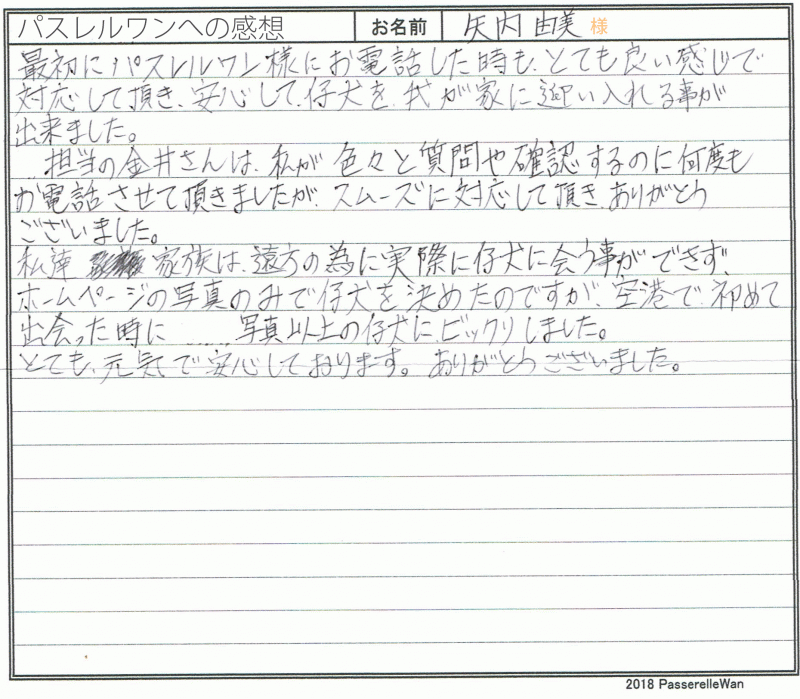 パスレルワンへの感想 お名前 矢内 由美 様
最初にパスレルワン様にお電話した時も、とても良い感じで
対応して頂き、安心して、仔犬を、我が家に迎い入れる事が
出来ました。
担当の金井さんは、私が色々と質問や確認するのに何度も
お電話させて頂きましたが、スムーズに対応して頂き、ありがとう
ございました。
私達 家族は、遠方の為に実際に仔犬に会う事ができず、
ホームページの写真のみで仔犬を決めたのですが、空港で、初めて
出会った時に......写真以上の仔犬に、ビックリしました。
とても、元気で安心しております。ありがとうございました。
2018 PasserelleWan